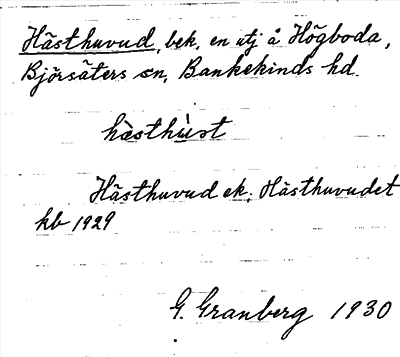 Hästhuvud, bek. en utj å Högboda,
Björsäters sn, Bankekinds hd.
hàsthùst
Hästhuvud ek. Hästhuvudet
kb 1929
G. Granberg 1930